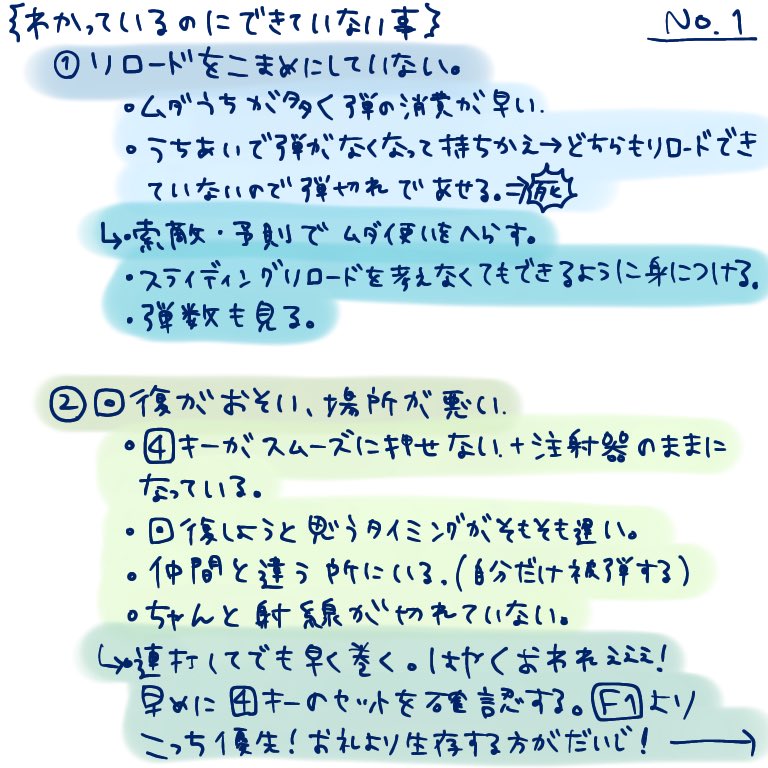 {わかっているのにできていない事}
No.1
① リロードをこまめにしていない。
・ムダうちが多く弾の消費が早い.
・うちあいで弾がなくなって持ちかえ→どちらもリロードでき
ていないので弾切れであせる。⇒死
↳・索敵・予測でムダ使いをへらす。
・スライディングリロードを考えなくてもできるように身につける。
・弾数も見る。
② 回復がおそい、場所が悪い.
・4キーがスムーズに押せない.+注射器のままに
なっている。
・回復しようと思うタイミングがそもそも遅い。
・仲間と違う所にいる.(自分だけ被弾する)
・ちゃんと射線が切れていない。
↳・連打してでも早く巻く。はやくおわれェェェ!
早めに4キーのセットを確認する。F1より
こっち優先!お礼より生存する方がだいじ!→